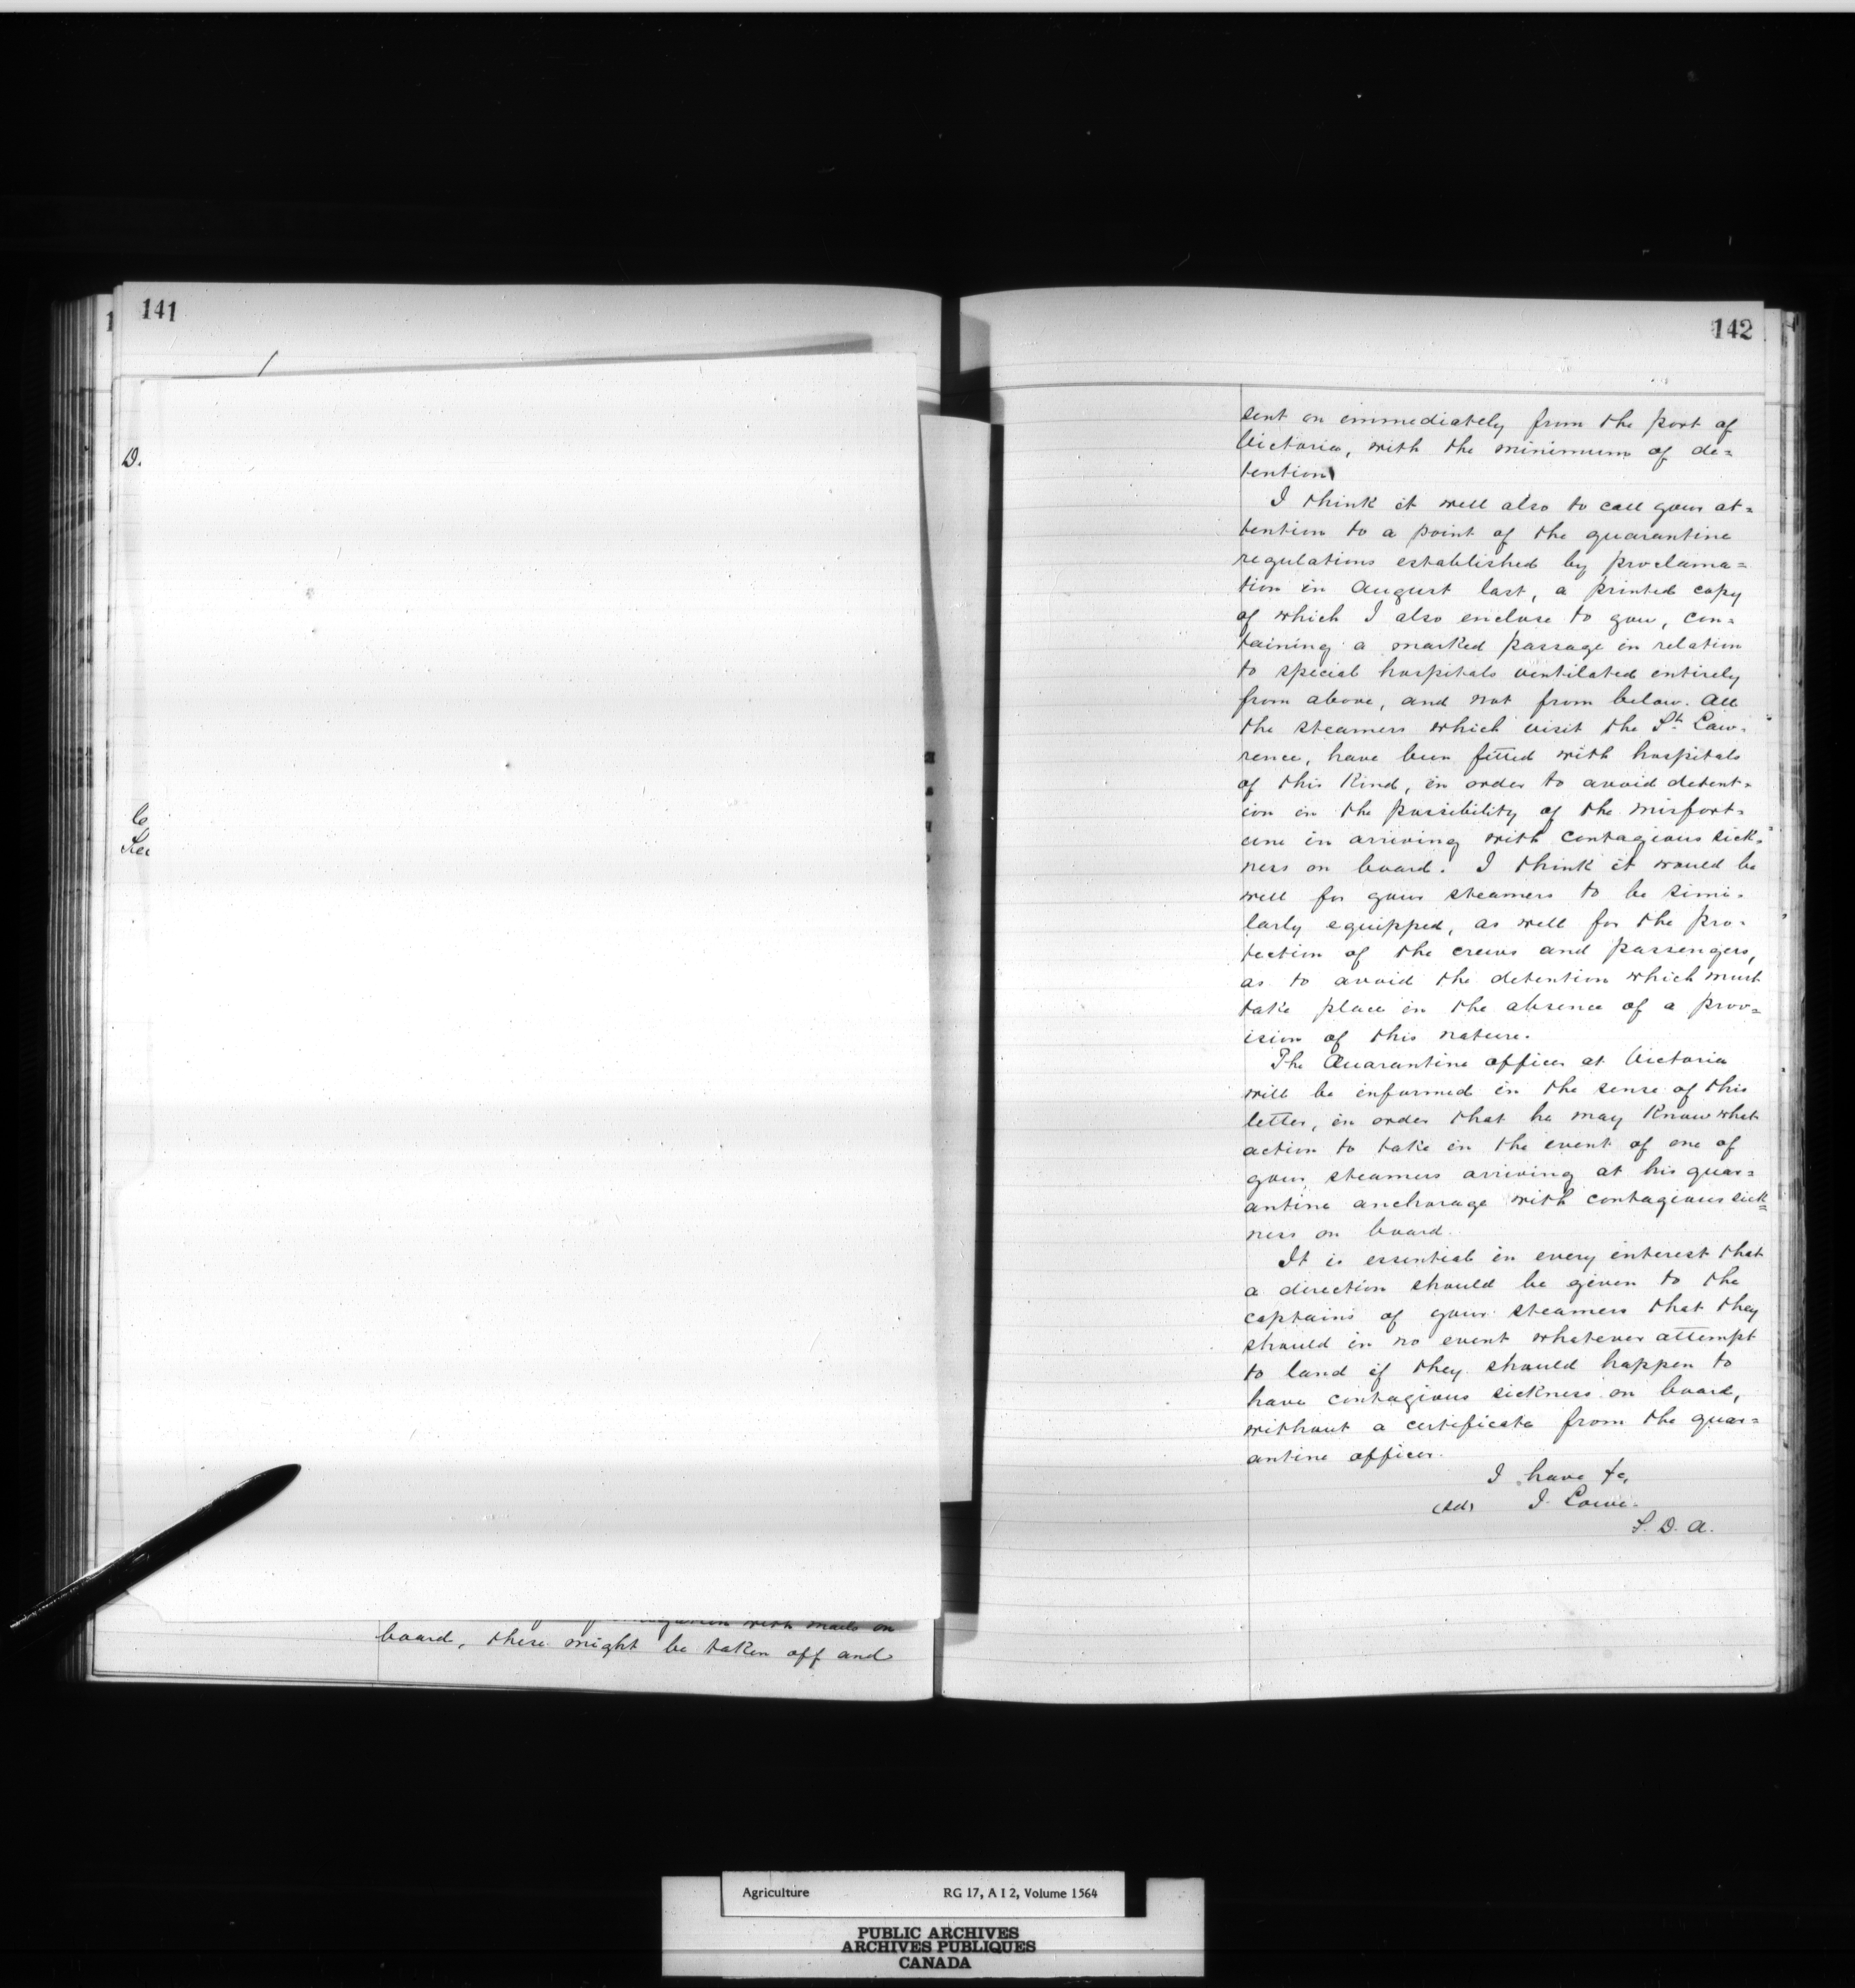 141
D.
board, these might be taken off and
142
sent on immediately from the port of
Victoria, with the minimum of de=
tention
I think it well also to call your at=
tention to a point of the quarantine
regulations established by proclama=
tion in August last, a printed copy
of which I also enclose to you, con=
taining a marked passage in relation
to special hospitals ventilated entirely
from above, and not from below. All
the steamers which visit the St. Law=
rence, have been fitted with hospitals
of this kind, in order to avoid detent=
ion in the possibility of the misfort=
une in arriving with contagious sick=
ness on board. I think it would be
well for your steamers to be simi=
larly equipped, as well for the pro=
tection of the crews and passengers,
as to avoid the detention which must
take place in the absence of a prov=
ision of this nature.
The Quarantine officer at Victoria
will be informed in the sense of this
letter, in order that he may know what
action to take in the event of one of
your steamers arriving at his quar=
antine anchorage with contagious sick=
ness on board.
It is essential in every interest that
a direction should be given to the
captains of your steamers that they
should in no event whatever attempt
to land if they should happen to
have contagious sickness on board,
without a certificate from the quar=
antine officer.
I have &c,
(Sd) J. Lowe.
S. D. A.
Agriculture RG 17, A I 2, Volume 1564
PUBLIC ARCHIVES
ARCHIVES PUBLIQUES
CANADA